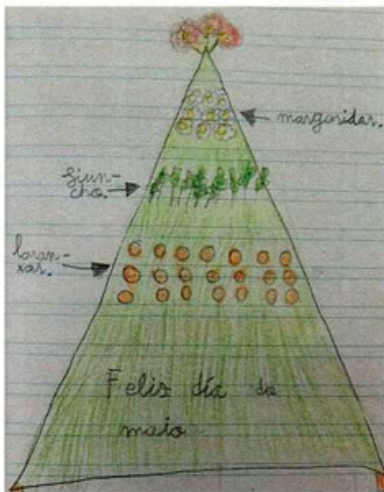 margaridas.
fiun-
cho.
laran-
xas.
Felis día de
maio